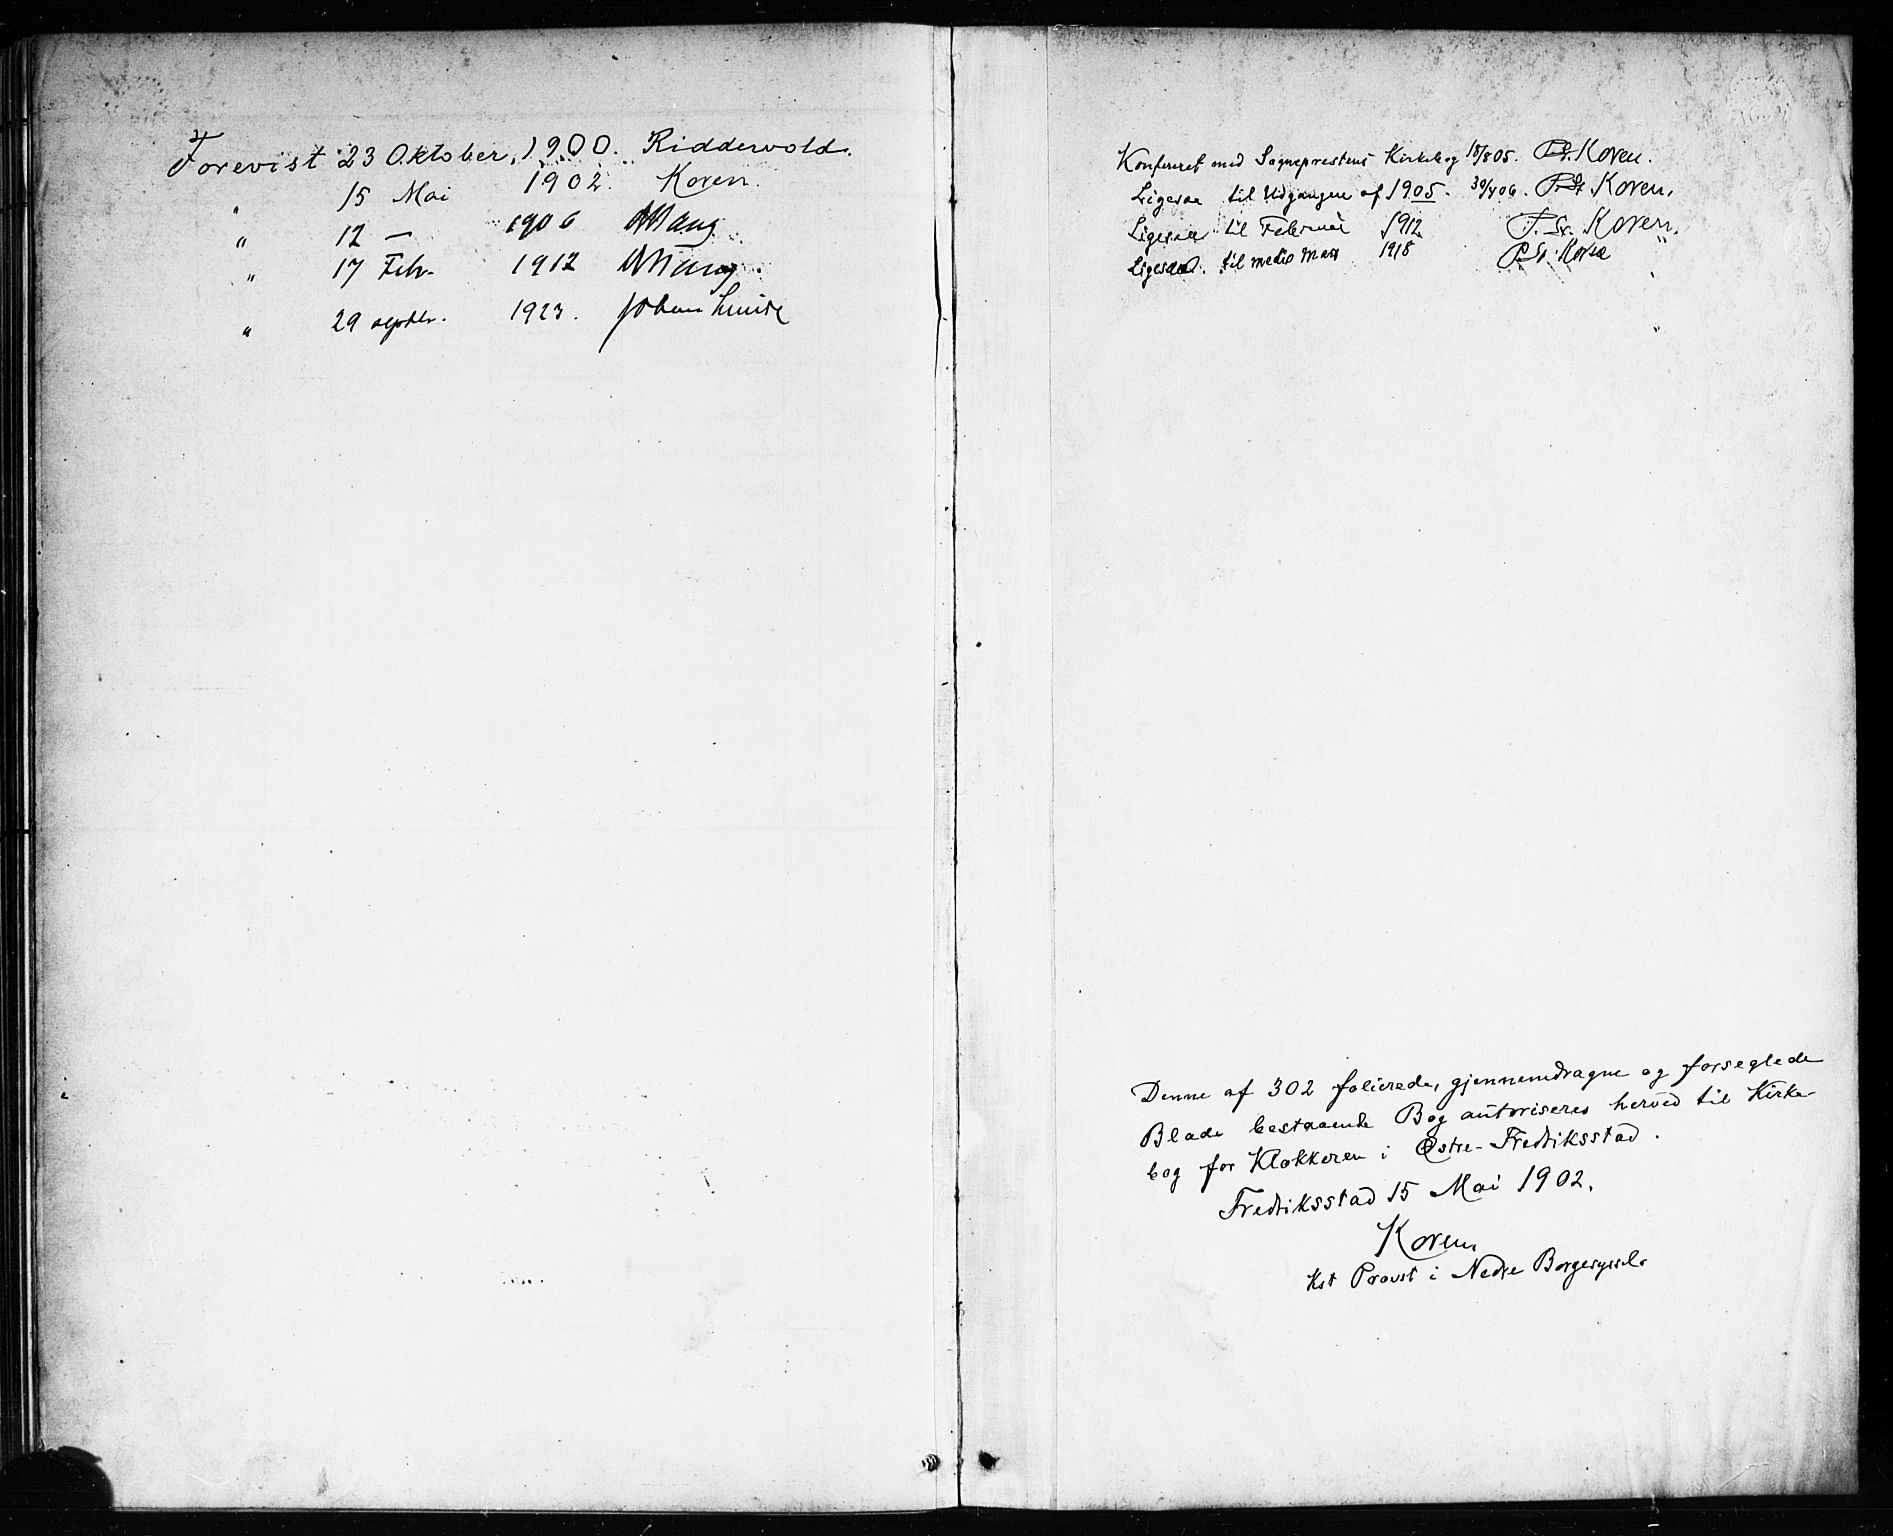 Forevist 23 Oktober, 1900. Riddervold.
" 15 Mai 1902. Koren.
" 12 — 1906
" 17 Febr. 1912
" 29 septbr. 1923. Johan Lunde
Konfereret med Sogneprestens Kirkebog 18/8 05. P. Sr. Koren.
Ligesaa til Udgangen af 1905. 30/4 06. P. Sr. Koren.
Ligesaa til Februar 1912 P. Sr. Koren.
Ligesaa til medio Mars 1918 P. Sr. Koren
Denne af 302 folierede, gjennemdragne og forseglede
Blade bestaaende Bog autoriseres herved til Kirke-
bog for Klokkeren i Østre-Fredriksstad.
Fredriksstad 15 Mai 1902.
Koren.
Kst Provst i Nedre Borgesyssel.